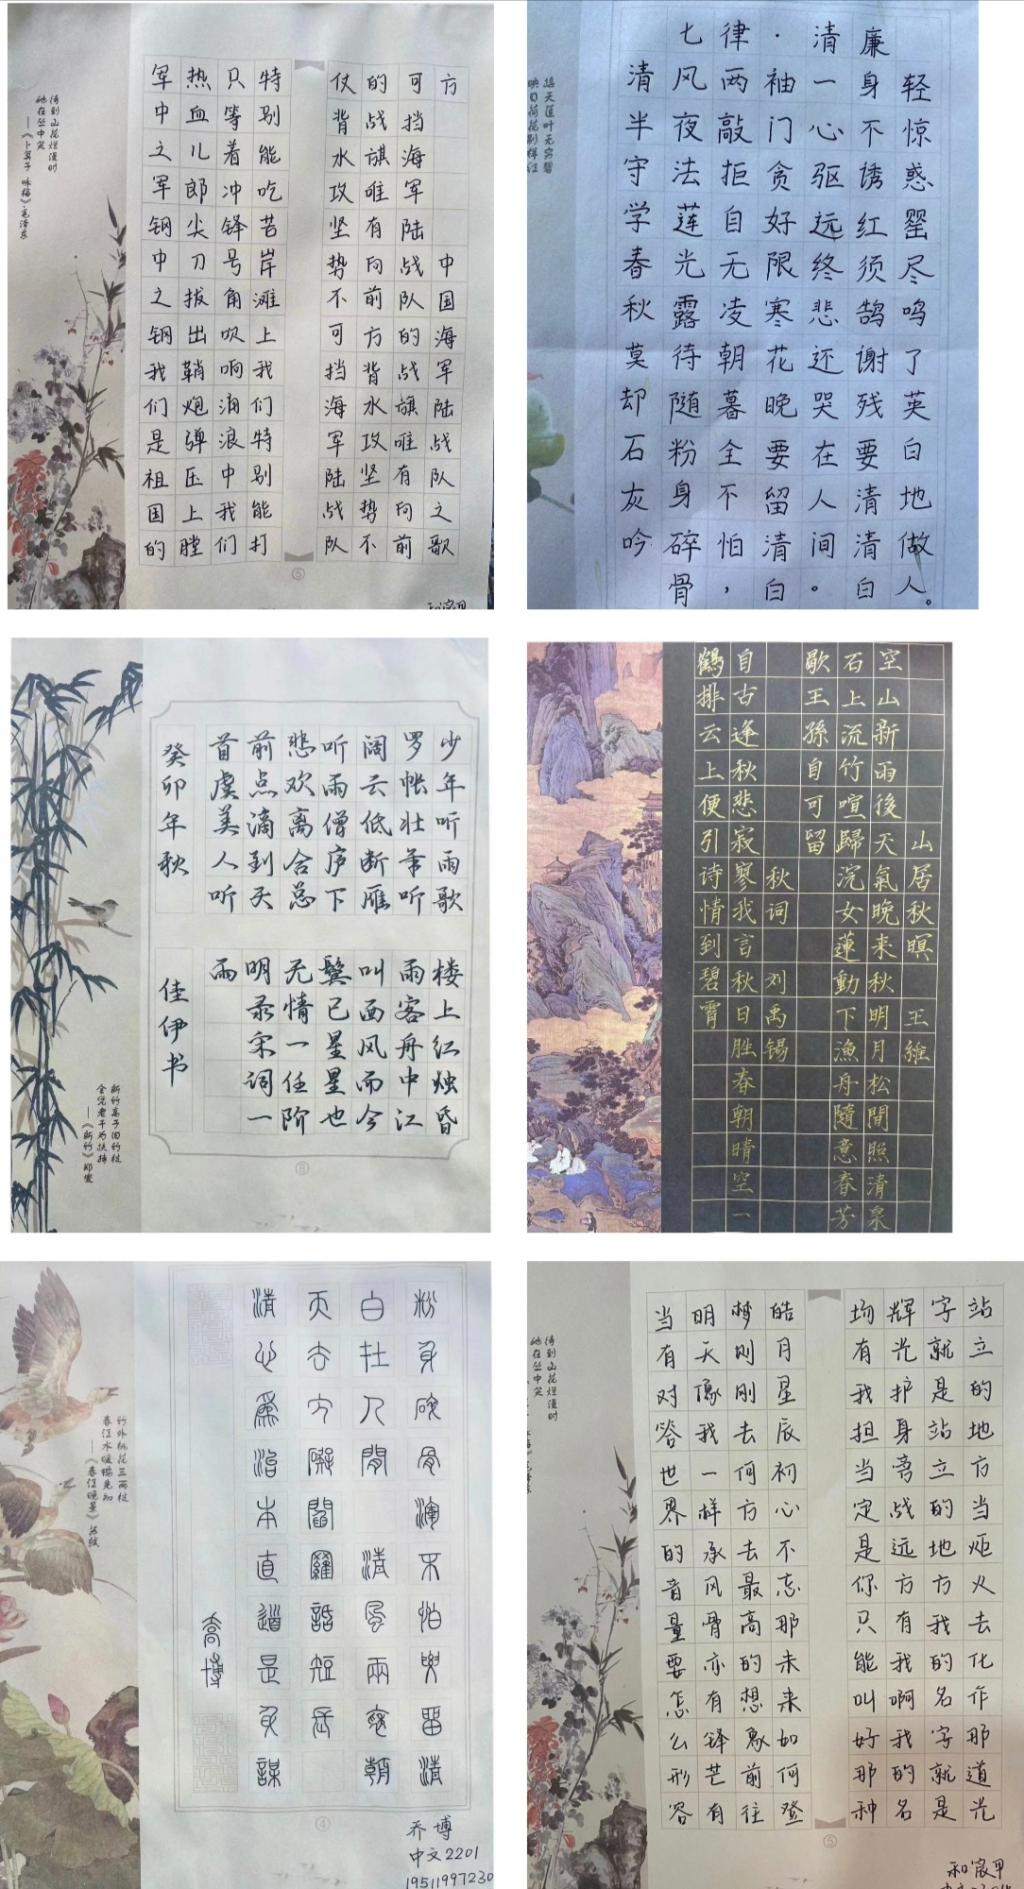 军中之军钢中之钢我们是祖国的
热血儿郎尖刀拔出鞘炮弹压上膛
只等着冲锋号角吹响涌浪中我们
特别能吃苦岸滩上我们特别能打
仗背水攻坚势不可挡海军陆战队
的战旗唯有向前方背水攻坚势不
可挡海军陆战队的战旗唯有向前
方
中国海军陆战队之歌
待到山花烂漫时
她在丛中笑
——《卜算子 咏梅》毛泽东
⑤
七律·清廉
清风两袖一身轻
半夜敲门心不惊
守法拒贪驱诱惑
学莲自好远红罂
春光无限终须尽
秋露凌寒悲鹄鸣
莫待朝花还谢了
却随暮晚哭残英
石灰吟
粉身碎骨
全不怕，
要留清白
在人间。
要清清白
白地做人。
接天莲叶无穷碧
映日荷花别样红
少年听雨歌楼上红烛昏
罗帐壮年听雨客舟中江
阔云低断雁叫西风而今
听雨僧庐下鬓已星星也
悲欢离合总无情一任阶
前点滴到天明录宋词一
首虞美人听雨
癸卯年秋佳伊书
新竹高于旧竹枝
全凭老干为扶持
——《新竹》郑燮
山居秋暝 王維
空山新雨後天氣晚来秋明月松間照清泉
石上流竹喧歸浣女蓮動下漁舟隨意春芳
歇王孫自可留
秋词 刘禹锡
自古逢秋悲寂寥我言秋日胜春朝晴空一
鹤排云上便引诗情到碧霄
粉身碎骨渾不怕要留清
白在人間 清風兩袖朝
天去
話短長
清心爲治本直道是身謀
喬博
竹外桃花三两枝
春江水暖鸭先知
——《春江晚景》苏轼
④
乔博
中文2201
19511997230
当有对答世界的音量要怎么形容
明天像我一样承风骨亦有锋芒有
梦则刚去何方去最高的想象前往
皓月星辰初心不忘那未来如何登
场有我担当定是你只能叫好那种
辉光护身旁战远方有我啊我的名
字就是站立的地方我的名字就是
站立的地方当炬火去化作那道光
待到山花烂漫时
她在丛中笑
⑤